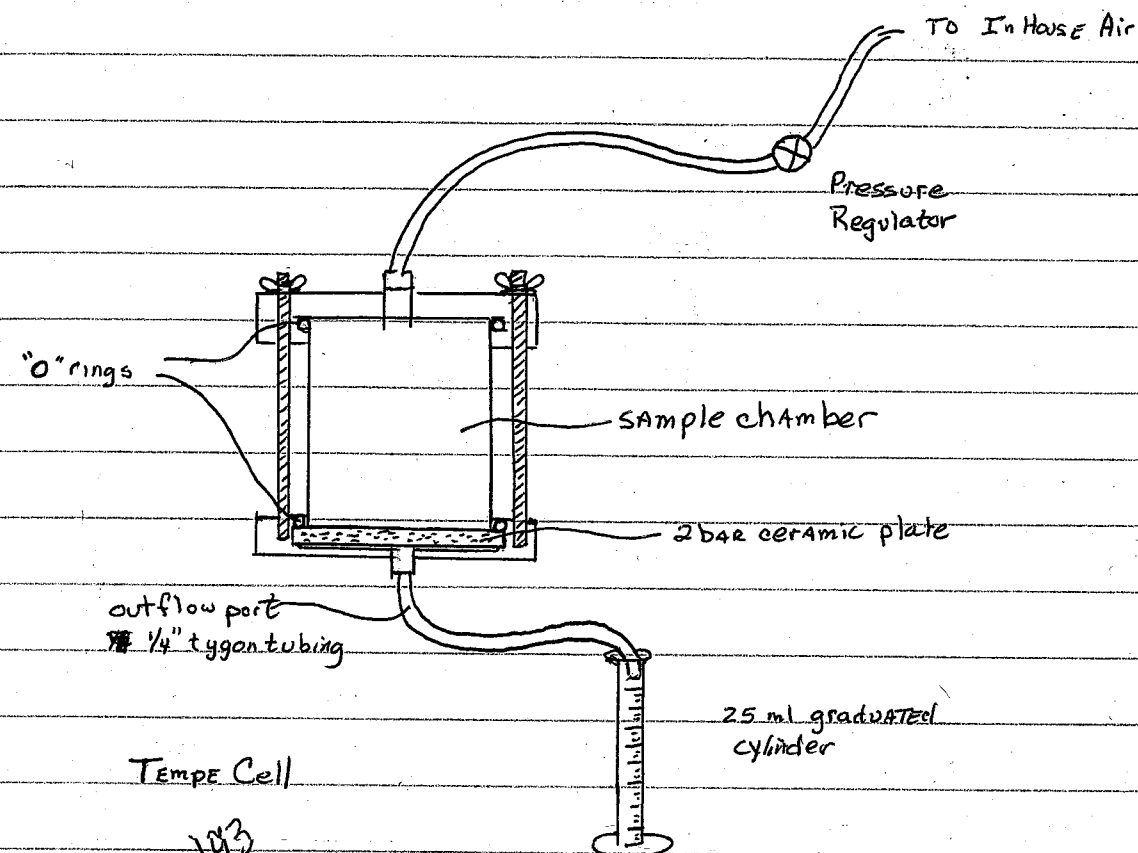 TO In House Air
Pressure
Regulator
"O" rings
sample chamber
2 bar ceramic plate
outflow port
1/4" tygon tubing
25 ml graduated
cylinder
Tempe Cell